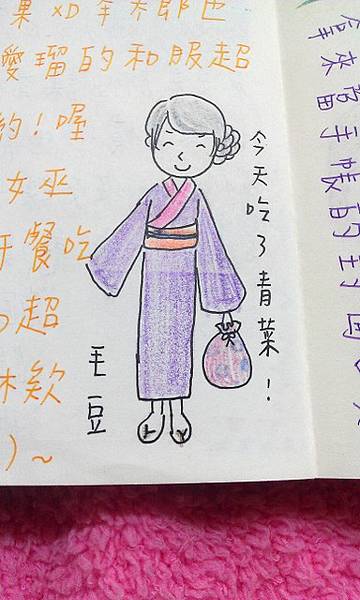 果XD幸太郎也
愛瑠的和服超
的!喔
女巫
餐吃
超
林欸
)~
今天吃了青菜!
毛豆
拿來當手帳的封面